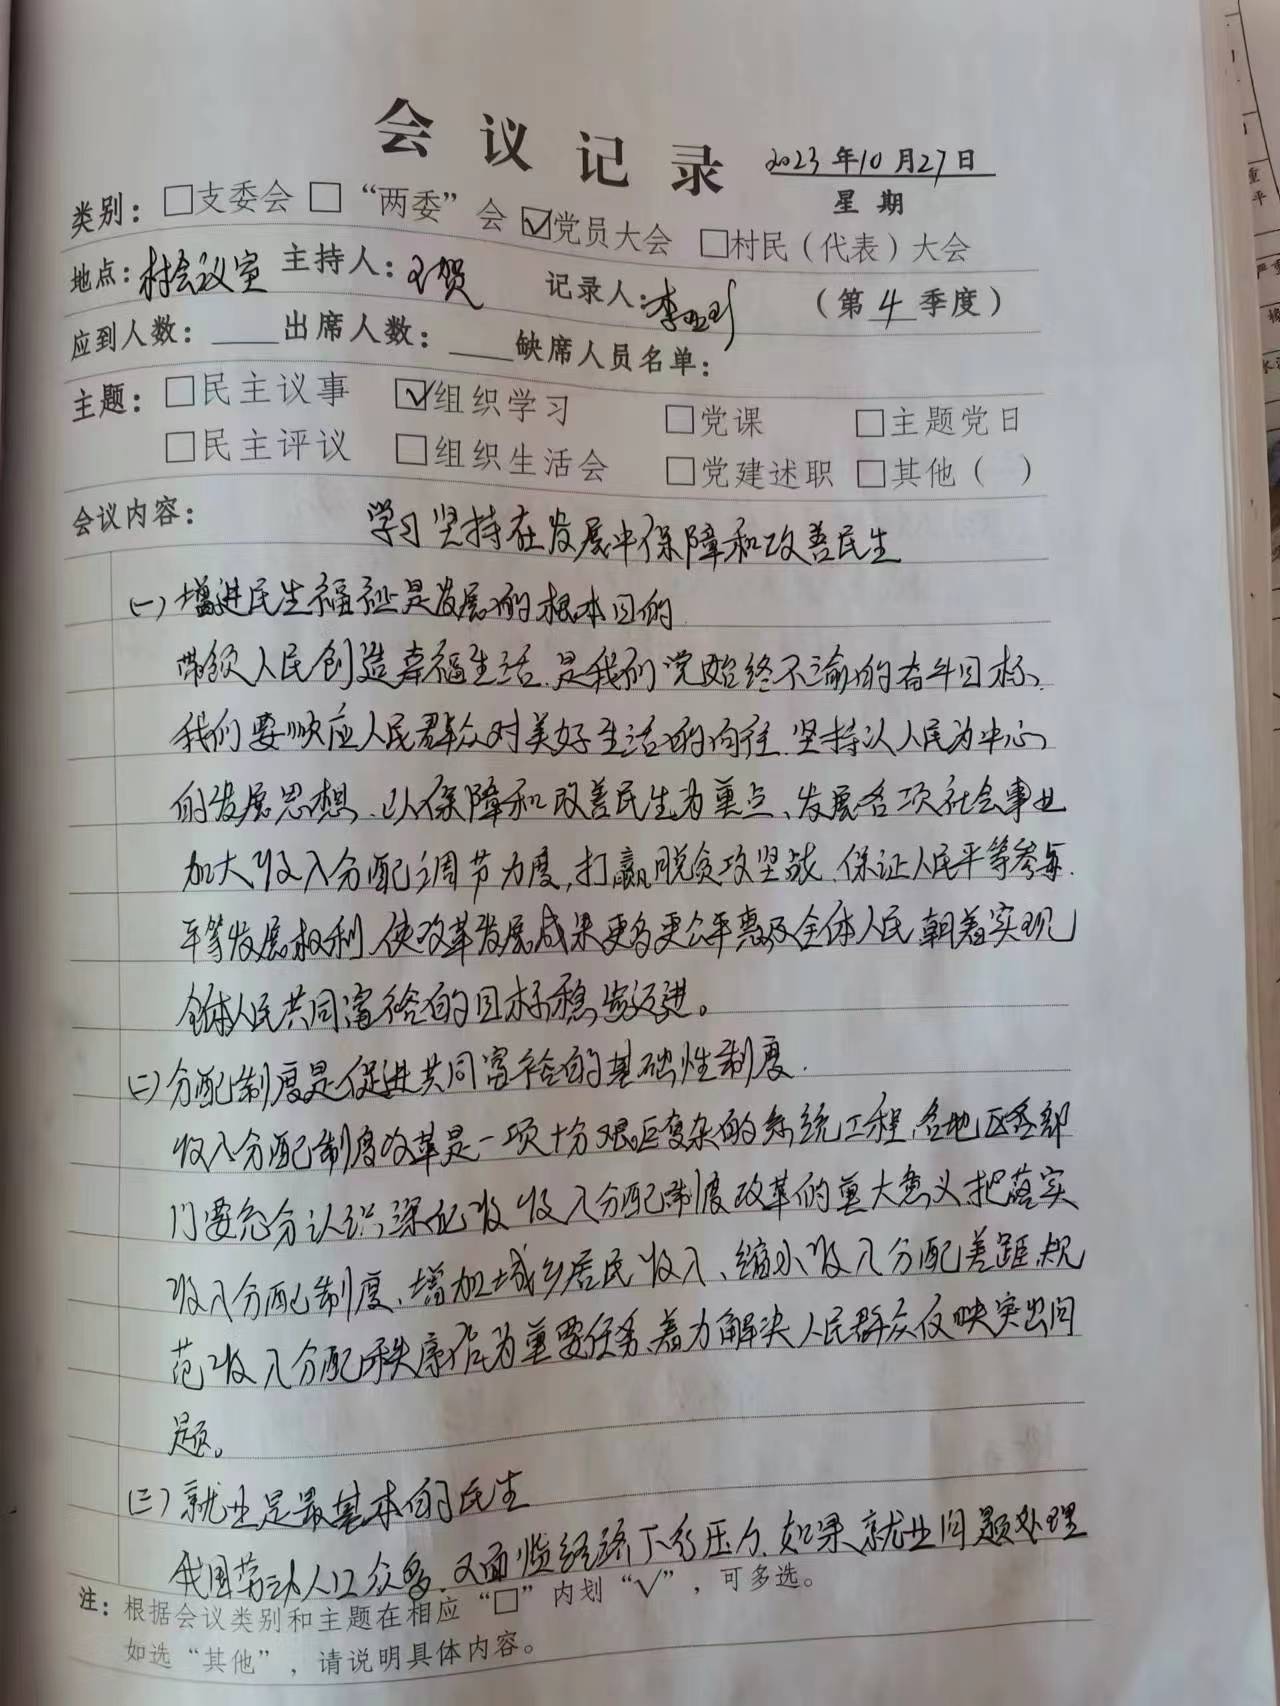 会议记录 2023年10月27日
星期
类别：□支委会 □“两委”会 ☑党员大会 □村民（代表）大会
地点：村会议室 主持人：王贺 记录人：李 （第4季度）
应到人数：____出席人数：____缺席人员名单：
主题：□民主议事 ☑组织学习 □党课 □主题党日
□民主评议 □组织生活会 □党建述职 □其他（ ）
会议内容： 学习坚持在发展中保障和改善民生
(一)增进民生福祉是发展的根本目的
带领人民创造幸福生活.是我们党始终不渝的奋斗目标、
我们要顺应人民群众对美好生活的向往.坚持以人民为中心
的发展思想、以保障和改善民生为重点、发展各项社会事业
加大收入分配调节力度,打赢脱贫攻坚战.保证人民平等参与.
平等发展权利,使改革发展成果更多更公平惠及全体人民,朝着实现
全体人民共同富裕的目标稳步迈进。
(二)分配制度是促进共同富裕的基础性制度.
收入分配制度改革是一项十分艰巨复杂的系统工程.各地区各部
门要充分认识深化收收入分配制度改革的重大意义.把落实
收入分配制度、增加城乡居民收入、缩小收入分配差距.规
范收入分配秩序作为重要任务.着力解决人民群众反映突出问
题。
(三)就业是最基本的民生
我国劳动人口众多.又面临经济下行压力.如果就业问题处理
注：根据会议类别和主题在相应“□”内划“√”，可多选。
如选“其他”，请说明具体内容。